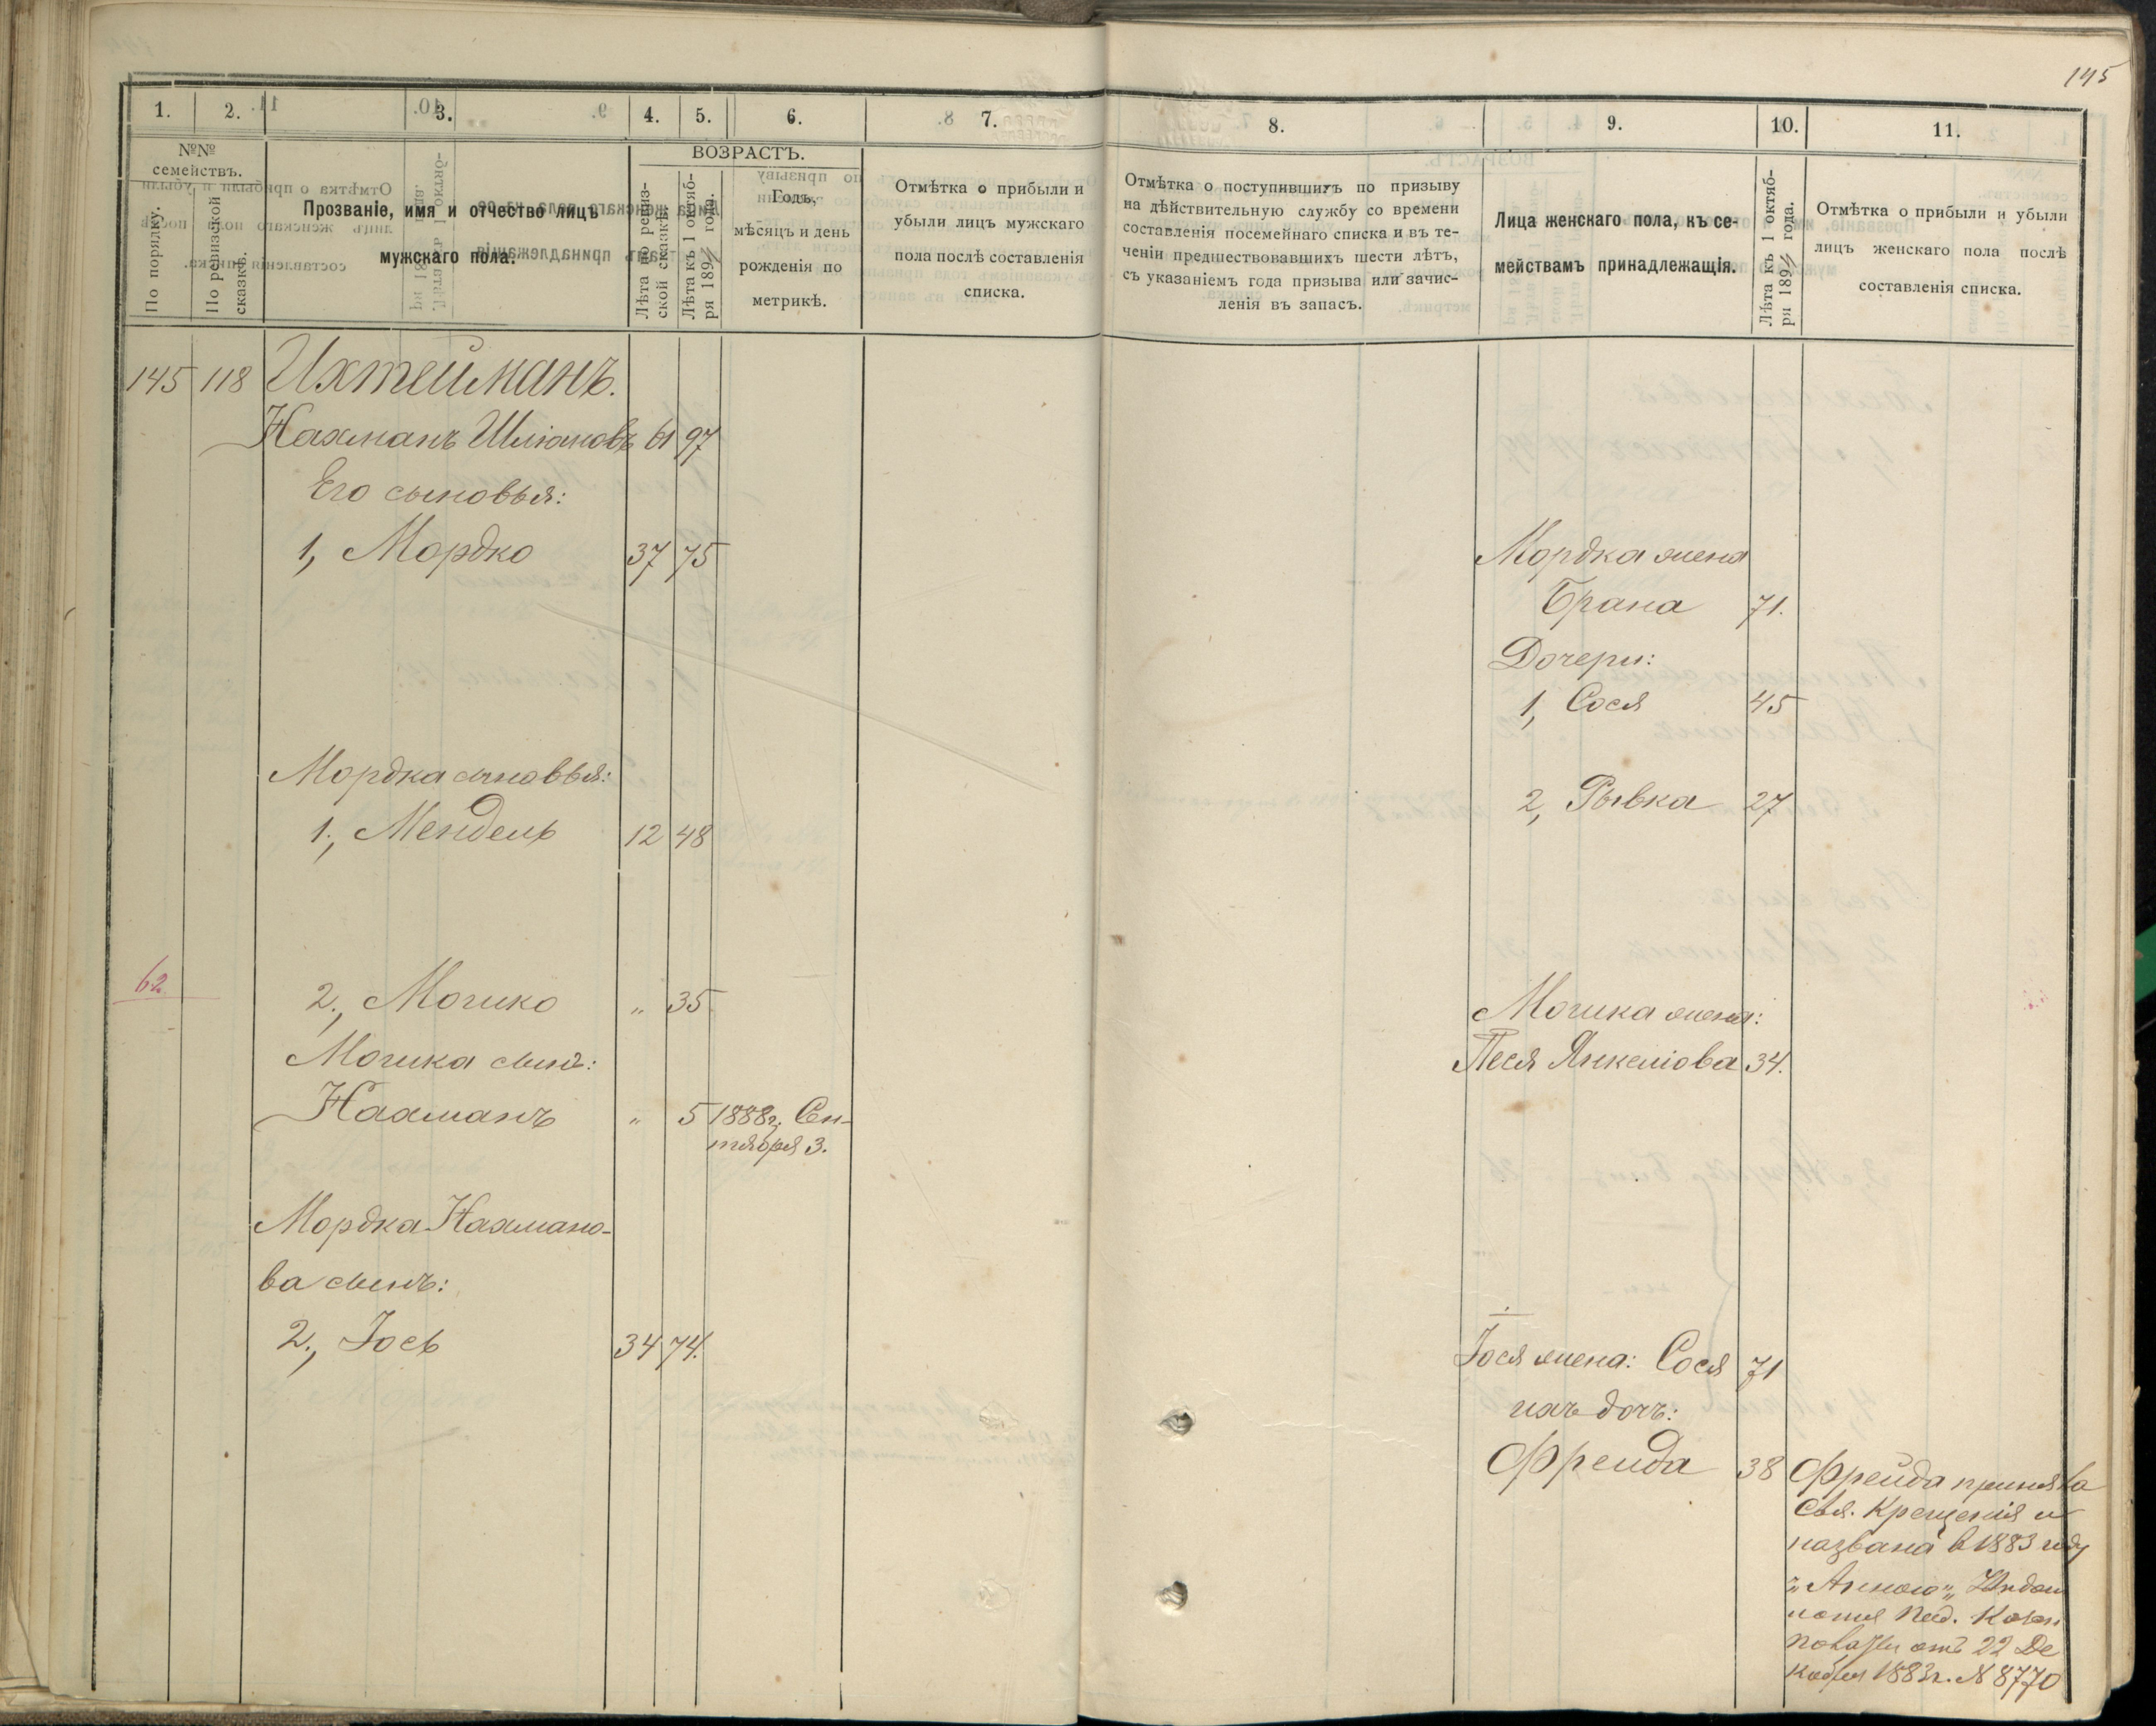 145
1. 2. 3. 4. 5. 6. 7. 8. 9. 10. 11.
№№ семействъ.
По порядку.
По ревизской сказкѣ.
Прозваніе, имя и отчество лицъ
мужскаго пола.
ВОЗРАСТЪ.
Лѣта по ревиз-
ской сказкѣ.
Лѣта къ 1 октяб-
ря 189 года.
Годъ,
мѣсяцъ и день
рожденія по
метрикѣ.
Отмѣтка о прибыли и
убыли лицъ мужскаго
пола послѣ составленія
списка.
Отмѣтка о поступившихъ по призыву
на дѣйствительную службу со времени
составленія посемейнаго списка и въ те-
ченіи предшествовавшихъ шести лѣтъ,
съ указаніемъ года призыва или зачис-
ленія въ запасъ.
Лица женскаго пола, къ се-
мействамъ принадлежащія.
Лѣта къ 1 октяб-
ря 189 года.
Отмѣтка о прибыли и убыли
лицъ женскаго пола послѣ
составленія списка.
145 118 Ихтейманъ.
Нахманъ Шліомовъ 61 97
Его сыновья:
1, Мордко 37 75
Мордка жена
Брана 71.
Дочери:
1, Сося 45
Мордка сыновья:
2, Рывка 27
1, Мендель 12 48
62
2, Мошко " 35
Мошка жена:
Мошка сынъ:
Песя Янкеліова 34.
Нахманъ " 5 1888г. Сен-
тября 3.
Мордка Нахмано-
ва сынъ:
2, Іось 34 74.
Іося жена: Сося 71
ихъ дочь:
Фрейда 38
Фрейда приняла
Свя. Крещенія и
названа в 1883 году
„Анною„
от 22 Де
кабря 1883г. № 8770